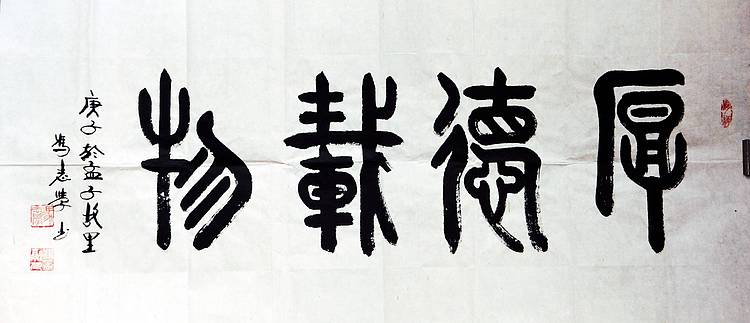 厚德載物
庚子於孟子故里
馮志學书